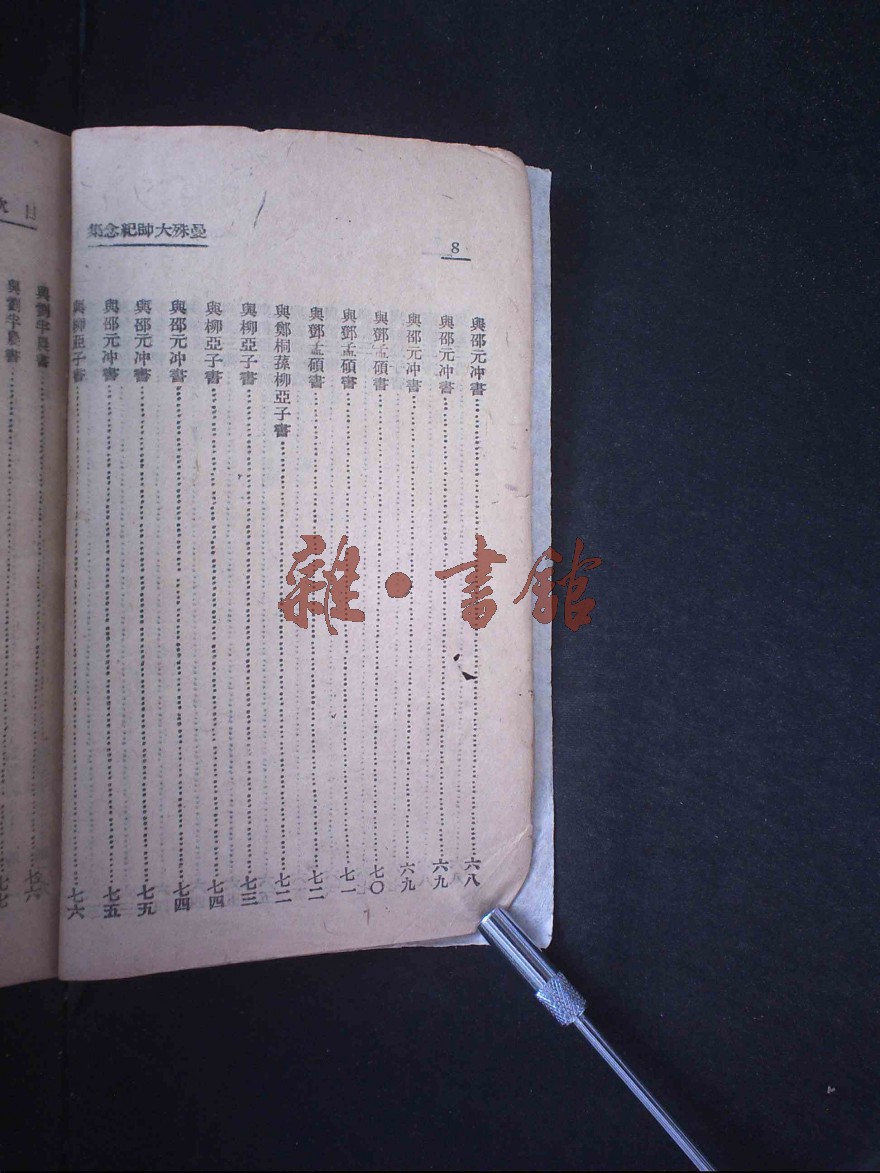 8
曼殊大師紀念集
與邵元冲書 六八
與邵元冲書 六九
與邵元冲書 六九
與鄧孟碩書 七〇
與鄧孟碩書 七一
與鄧孟碩書 七二
與鄭桐蓀柳亞子書 七二
與柳亞子書 七三
與柳亞子書 七四
與邵元冲書 七四
與邵元冲書 七五
與邵元冲書 七五
與柳亞子書 七六
目次
與劉半農書 七六
與劉半農書 七七
雜·書館